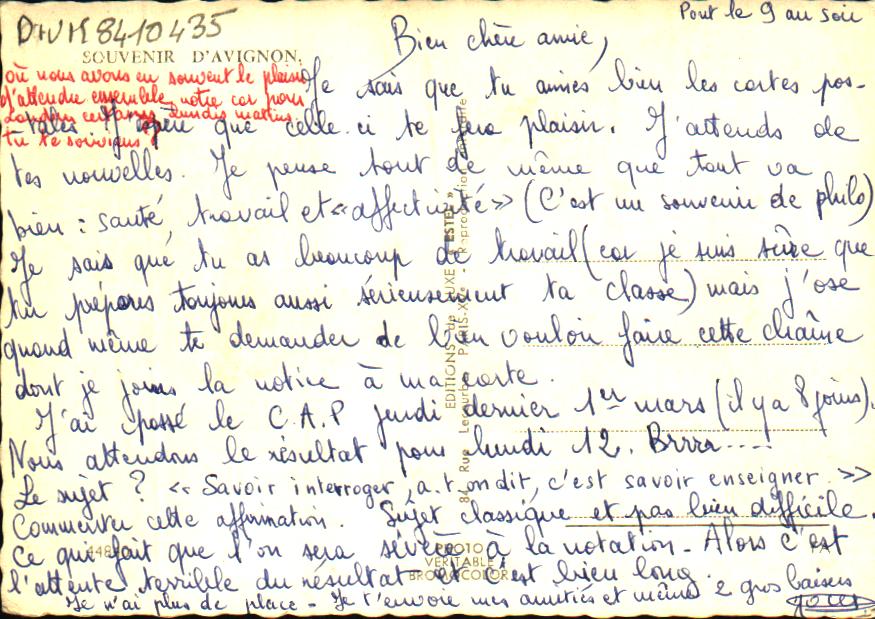 Pont le 9 au soir
D+VK 8410435
Bien chère amie,
SOUVENIR D'AVIGNON,
où nous avons eu souvent le plaisir
d'attendre ensemble, notre car pour
certains lundis matins.
tu te souviens?
Je sais que tu aimes bien les cartes pos-
tales J'espère que celle.ci te fera plaisir. J'attends de
tes nouvelles. Je pense tout de même que tout va
bien : santé, travail et «affectivité» (C'est un souvenir de philo)
Je sais que tu as beaucoup de travail (car je suis sûre que
tu prépares toujours aussi sérieusement ta classe) mais j'ose
quand même te demander de bien vouloir faire cette chaîne
dont je joins la notice à ma carte.
J'ai passé le C.A.P jeudi dernier 1er mars (il y a 8 jours).
Nous attendons le résultat pour lundi 12. Brrrr....!
Le sujet ? « Savoir interroger, a.t.on dit, c'est savoir enseigner. »
Commenter cette affirmation. Sujet classique et pas bien difficile.
Ce qui fait que l'on sera sévère à la notation. Alors c'est
l'attente terrible du résultat et c'est bien long.
Je n'ai plus de place - Je t'envoie mes amitiés et même 2 gros baisers
EDITIONS de LUXE "ESTEL"
PARIS
PHOTO
VERITABLE
BROMOCOLOR